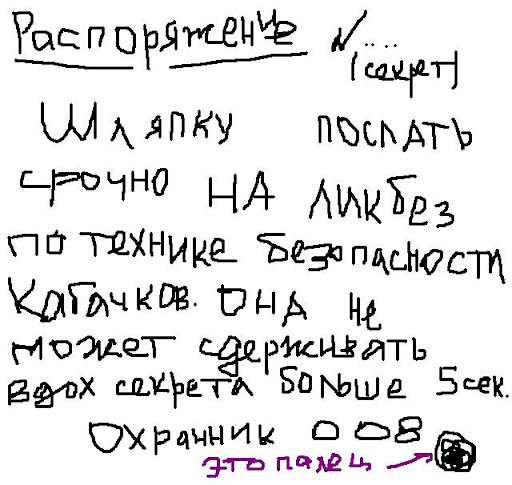 Распоряжение № ....
(секрет)
Шляпку послать
срочно на ликбез
по технике безопасности
кабачков. Она не
может сдерживать
вдох секрета больше 5 сек.
Охранник 008
это палец